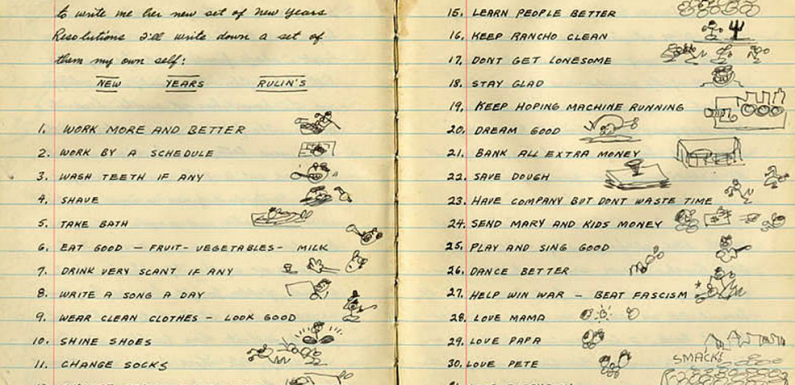 to write me her new set of New Years
Resolutions I'll write down a set of
them my own self:
NEW YEARS RULIN'S
1. WORK MORE AND BETTER
2. WORK BY A SCHEDULE
3. WASH TEETH IF ANY
4. SHAVE
5. TAKE BATH
6. EAT GOOD — FRUIT - VEGETABLES - MILK
7. DRINK VERY SCANT IF ANY
8. WRITE A SONG A DAY
9. WEAR CLEAN CLOTHES — LOOK GOOD
10. SHINE SHOES
11. CHANGE SOCKS
15. LEARN PEOPLE BETTER
16. KEEP RANCHO CLEAN
17. DONT GET LONESOME
18. STAY GLAD
19. KEEP HOPING MACHINE RUNNING
20. DREAM GOOD
21. BANK ALL EXTRA MONEY
22. SAVE DOUGH
23. HAVE COMPANY BUT DONT WASTE TIME
24. SEND MARY AND KIDS MONEY
25. PLAY AND SING GOOD
26. DANCE BETTER
27. HELP WIN WAR — BEAT FASCISM
28. LOVE MAMA
29. LOVE PAPA
SMACK!
30. LOVE PETE